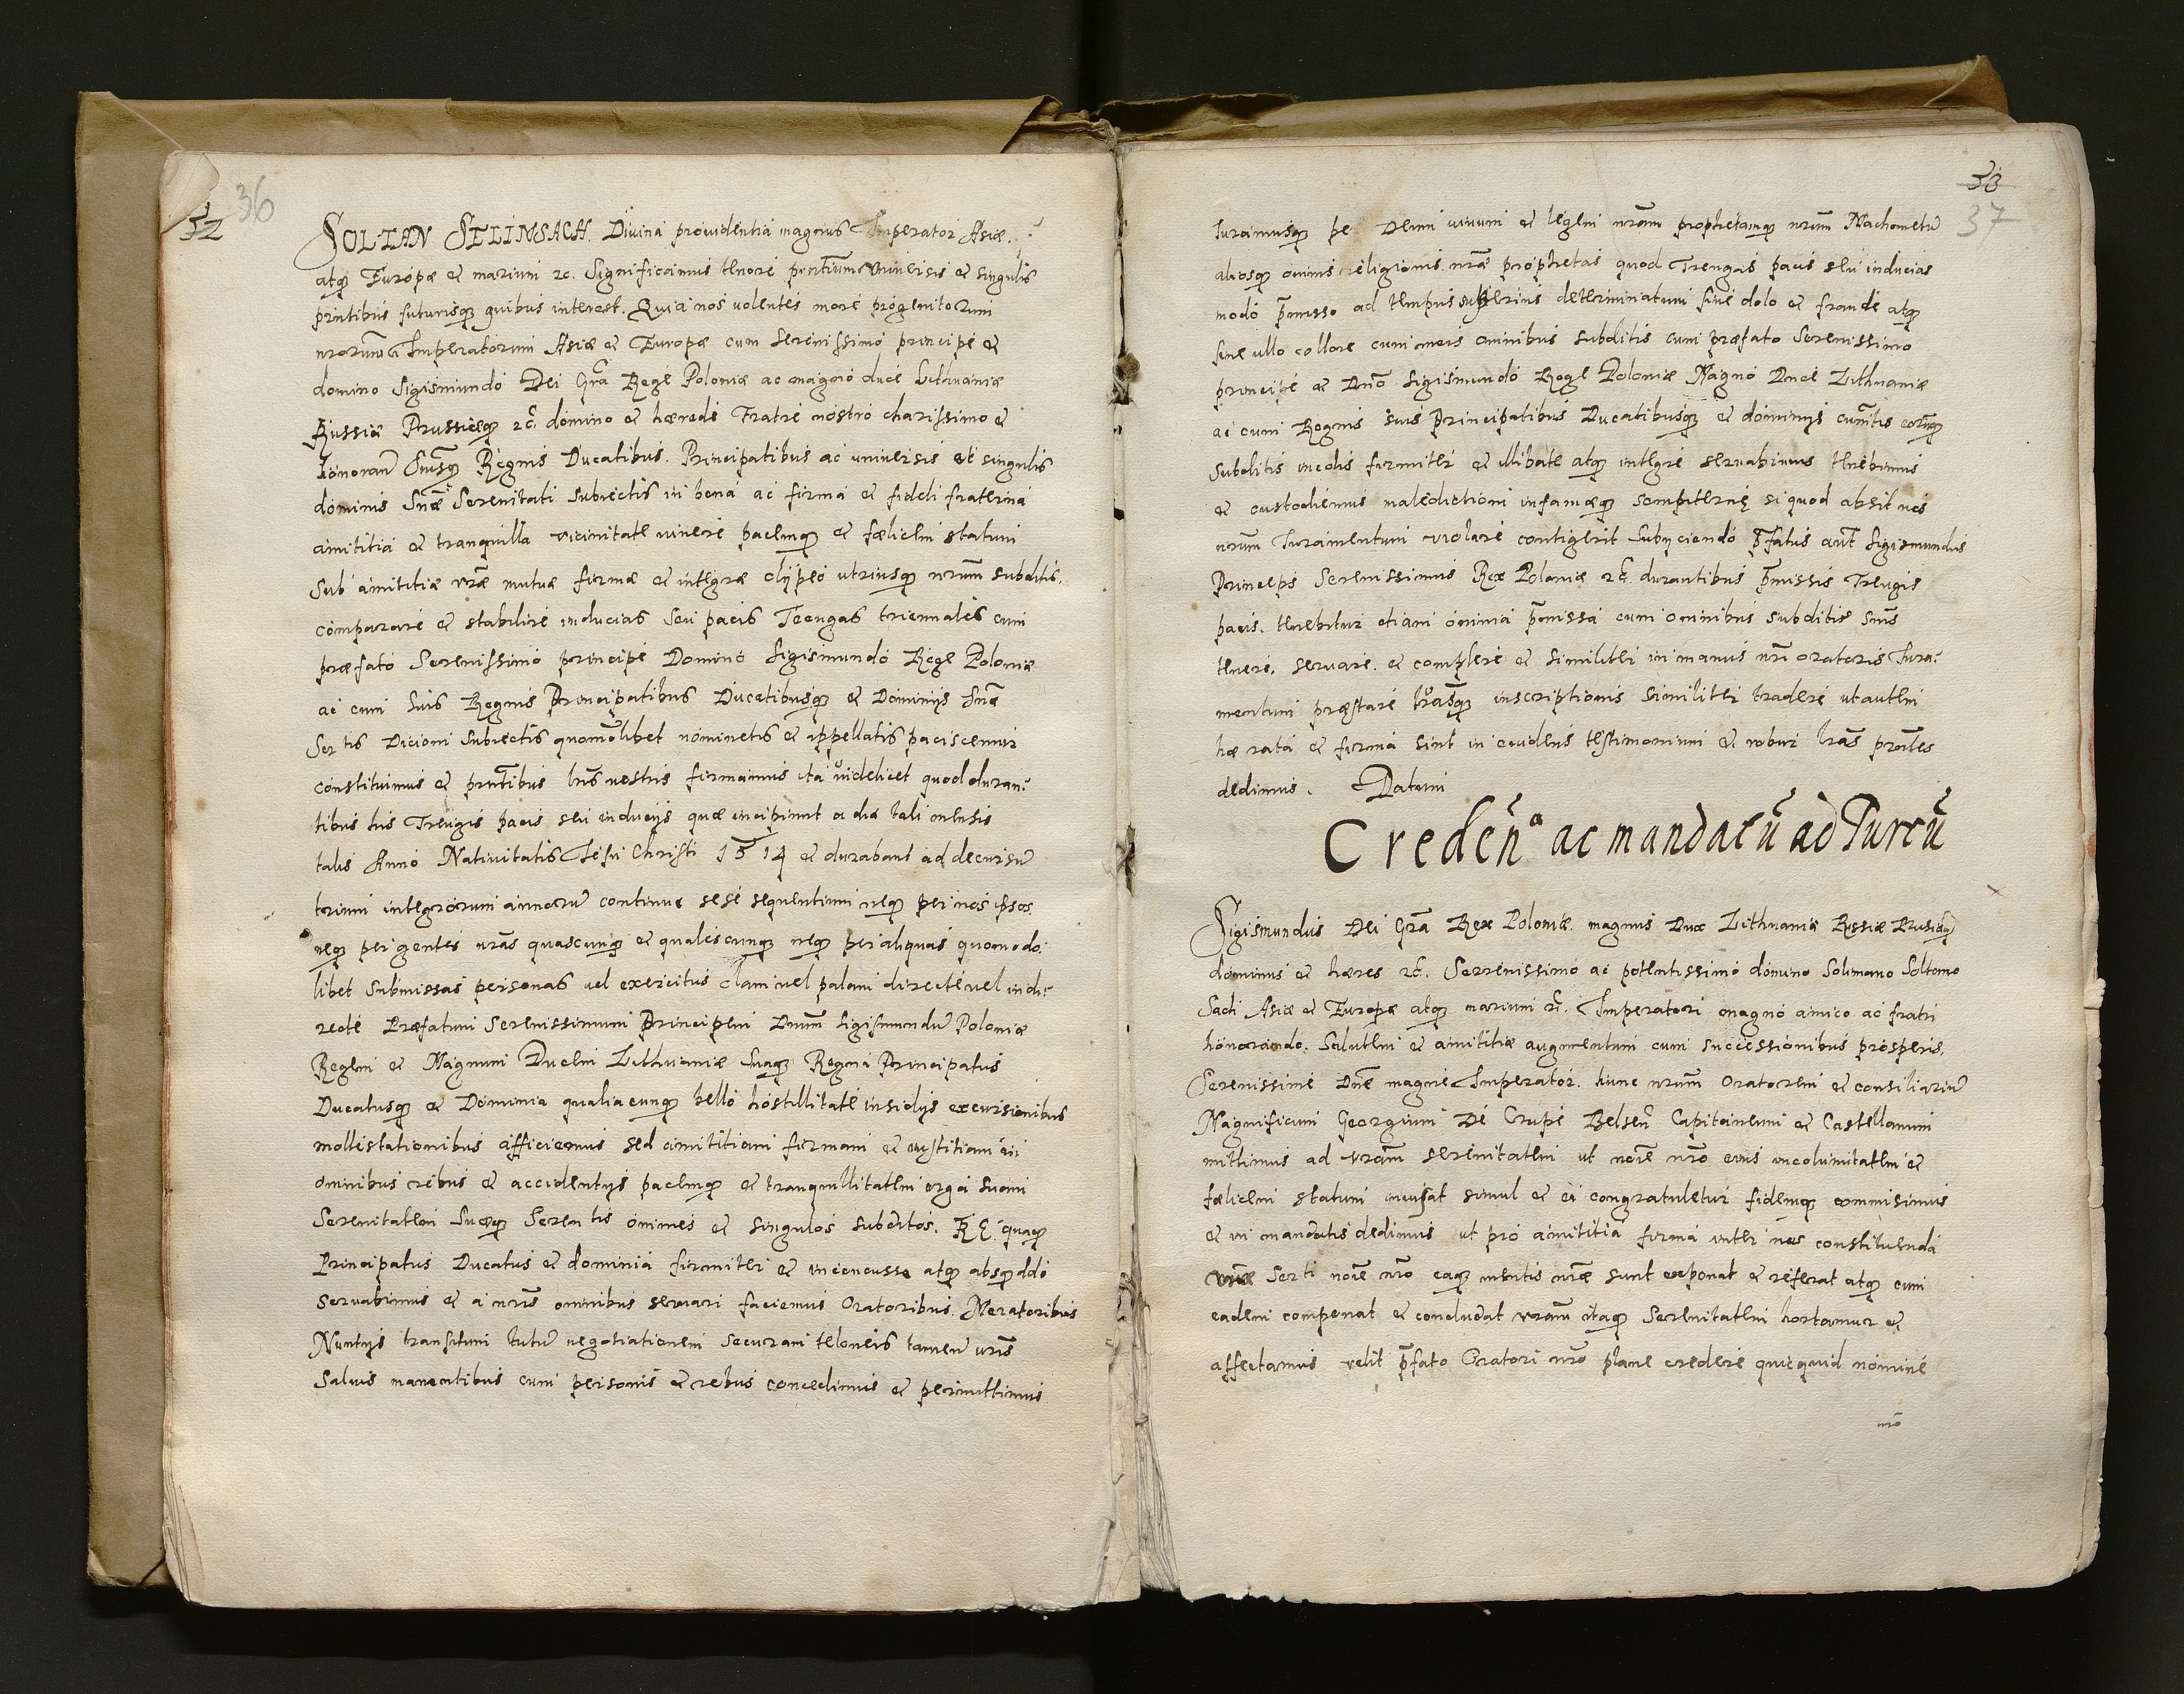 36
32
SOLTAN SELIMSACH. Divina providentia magnus Imperator Asiæ.
atq3 Europæ et marium 2c. Significamus tenore pñtium Universis et singulis
pñtibus futurisq3 quibus interest. Quia nos volentes more progenitorum
nrorum Imperatorum Asiæ et Europæ cum Serenissimo principe et
domino Sigismundo Dei Grã Rege Poloniæ ac magno duce Lithuaniæ
Russiæ Prussiæq3 2c̃. domino et hærede Fratre nostro charissimo et
honoran̄ Regnis Ducatibus. Principatibus ac universis et singulis
dominis Suæ Serenitati subiectis in bona ac firma et fideli fraterna
amititia et tranquilla vicinitate vivere pacemq3 et fœlicem statum
sub amititiæ vrãe mutuæ firmæ et integræ clÿpeo utriusq3 nrum̃ subditis.
comparare et stabilire inducias seu pacis Teengas triennales cum
præfato Serenissimo principe Domino Sigismundo Rege Poloniæ
ac cum suis Regnis Principatibus Ducatibusq3 et Dominijs Suæ
Sertis Dicioni subiectis quomõlibet nominatis et appellatis paciscemur
constituimus et pñtibus lrĩs nostris firmamus ita videlicet quod duran:
tibus his Treugis pacis seu inducijs quæ incipiunt a die tali mensis
talis Anno Nativitatis Jesu Christi 1514 et durabunt ad decursũ
trium integrorum annorũ continue sese sequentium neq3 per nos ipsos.
neq3 per gentes nrãs quascunq3 et qualescunq3 neq3 per aliquas quomodo:
libet submissas personas vel exercitus clam vel palam directe vel indi:
recte Præfatum Serenissimum Principem Dnum̃ Sigismundũ Poloniæ
Regem et Magnum Ducem Lithuaniæ Suaq3 Regna Principatus
Ducatusq3 et Dominia qualiacunq3 bello hostillitate insidÿs excursionibus
mollestationibus afficiemus sed amititiam firmam et iustitiam in
omnibus rebus et accidentÿs pacemq3 et tranquillitatem erga suam
Serenitatem Suæq3 Serentis omnes et singulos subditos.
Principatus Ducatus et dominia firmiter et inconcusse atq3 absq3 dolo
servabimus et a nrĩs omnibus servari faciemus Oratoribus. Mercatoribus
Nuntÿs transitum tutũ negotiationem securam teloneis tamen nrĩs
salvis manentibus cum personis et rebus concedimus et permittimus
33
37
Iuramusq3 per Deum vivum et legem nrãm prophetamq3 nrum̃ Machometũ
aliosq3 omnis religionis nrãe prophetas quod Treugas pacis seu inducias
modo p̃misso ad tempus superius determinatum sine dolo et fraude atq3
sine ullo collore cum meis omnibus subditis cum præfato Serenissimo
principe et Dnõ Sigismundo Rege Poloniæ Magno Duce Lithuaniæ
ac cum Regnis suis Principatibus Ducatibusq3 et dominÿs cunctis
subditis incolis firmiter et illibate atq3 integre servabimus tenebimus
et custodiemus maledictioni infamiæq3 sempiternę si quod absit nos
nrum̃ Iuramentum violare contigerit subÿciendo p̃fatus aut̃ Sigismundus
Princeps Serenissimus Rex Poloniæ 2c̃. durantibus p̃missis Treugis
pacis. tenebitur etiam omnia p̃missa cum omnibus subditis suis
tenere. servare. et complere et similiter in manus nrĩ oratoris Iura:
mentum præstare lrãsq3 inscriptionis similiter tradere ut autem
hæ rata et firma sint in evidens testimonium et robur lrãs pñtes
dedimus. Datum
Creden̄ ac mandatũ ad Turcũ
Sigismundus Dei Grã Rex Poloniæ. magnus Dux Lithuaniæ Russiæ Prusiæq3
dominus et hæres 2c̃. Serrenissimo ac potentissimo domino Solimano Soltano
Sach Asiæ et Europæ atq3 marium 2c̃. Imperatori magno amico ac fratri
honorando. Salutem et amititiæ augmentum cum successionibus prosperis.
Serenissime Dnẽ magne Imperator. hunc nrum̃ Oratorem et consiliariũ
Magnificum Georgium De Crupe Belsen̄ Capitaneum et Castellanum
mittimus ad vrãm serenitatem ut noĩe nrõ eius incolumitatem et
fœlicem statum invisat simul et ei congratuletur fidemq3 commisimus
et in mandatis dedimus ut pro amititia firma inter nos constituenda
vrãe Serti noĩe nrõ eaq3 mentis nrãe sunt exponat et referat atq3 cum
eadem componat et concludat vrãm itaq3 Serenitatem hortamur et
affectamus velit p̃fato Oratori nrõ plane credere quicquid nomine
nrõ